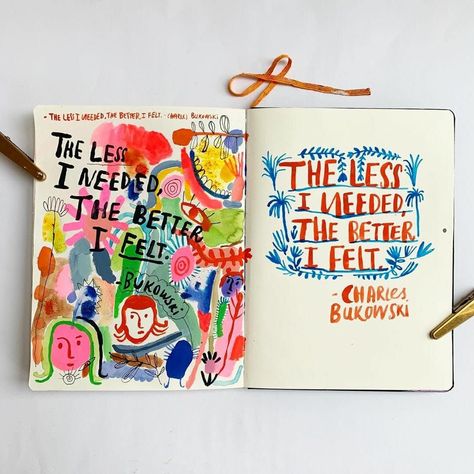 - THE LESS I NEEDED, THE BETTER, I FELT. - CHARLES BUKOWSKI
THE LESS
I NEEDED,
THE BETTER
I FELT.
- BUKOWSKI
THE LESS
I NEEDED,
THE BETTER
I FELT.
- CHARLES
BUKOWSKI